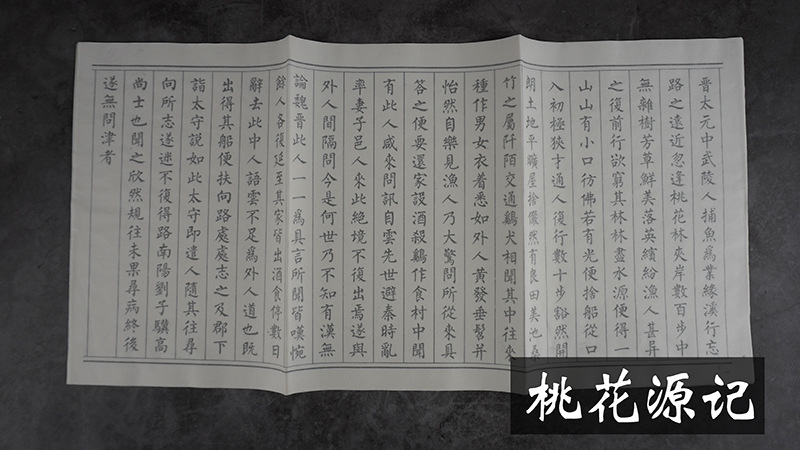 晉太元中武陵人捕魚爲業緣溪行忘
路之遠近忽逢桃花林夾岸數百步中
無雜樹芳草鮮美落英繽紛漁人甚异
之復前行欲窮其林林盡水源便得一
山山有小口彷佛若有光便捨船從口
入初極狹才通人復行數十步豁然開
朗土地平曠屋捨儼然有良田美池桑
竹之屬阡陌交通鷄犬相聞其中往來
種作男女衣着悉如外人黃發垂髫并
怡然自樂見漁人乃大驚問所從來具
答之便要還家設酒殺鷄作食村中聞
有此人咸來問訊自雲先世避秦時亂
率妻子邑人來此絕境不復出焉遂與
外人間隔問今是何世乃不知有漢無
論魏晉此人一一爲具言所聞皆嘆惋
餘人各復延至其家皆出酒食停數日
辭去此中人語雲不足爲外人道也既
出得其船便扶向路處處志之及郡下
詣太守説如此太守即遣人隨其往尋
向所志遂迷不復得路南陽劉子驥高
尚士也聞之欣然規往未果尋病終後
遂無問津者
桃花源记